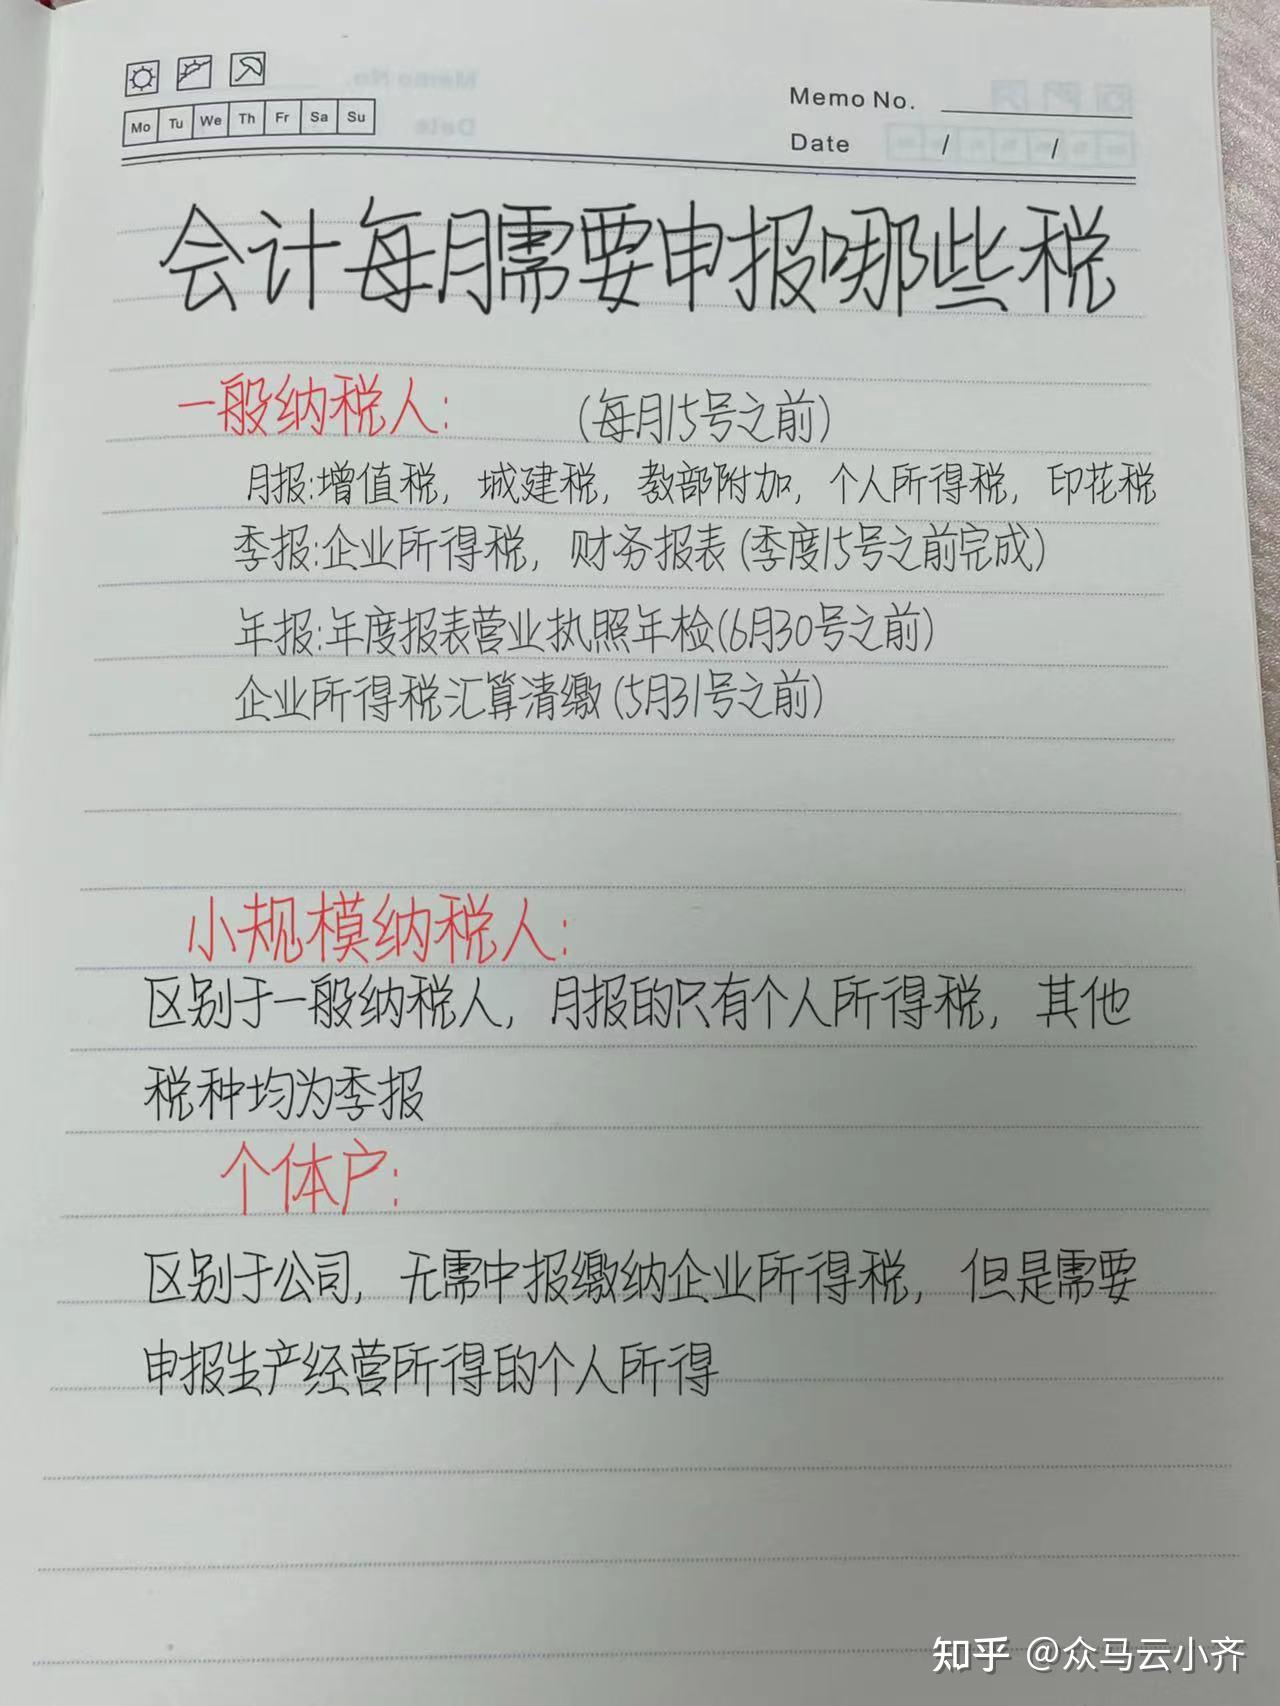 Mo Tu We Th Fr Sa Su
Memo No.
Date / /
会计每月需要申报哪些税
一般纳税人: (每月15号之前)
月报:增值税, 城建税, 教部附加, 个人所得税, 印花税
季报:企业所得税, 财务报表(季度15号之前完成)
年报:年度报表营业执照年检(6月30号之前)
企业所得税汇算清缴(5月31号之前)
小规模纳税人:
区别于一般纳税人, 月报的只有个人所得税, 其他
税种均为季报
个体户:
区别于公司, 无需申报缴纳企业所得税, 但是需要
申报生产经营所得的个人所得
知乎 @众马云小齐